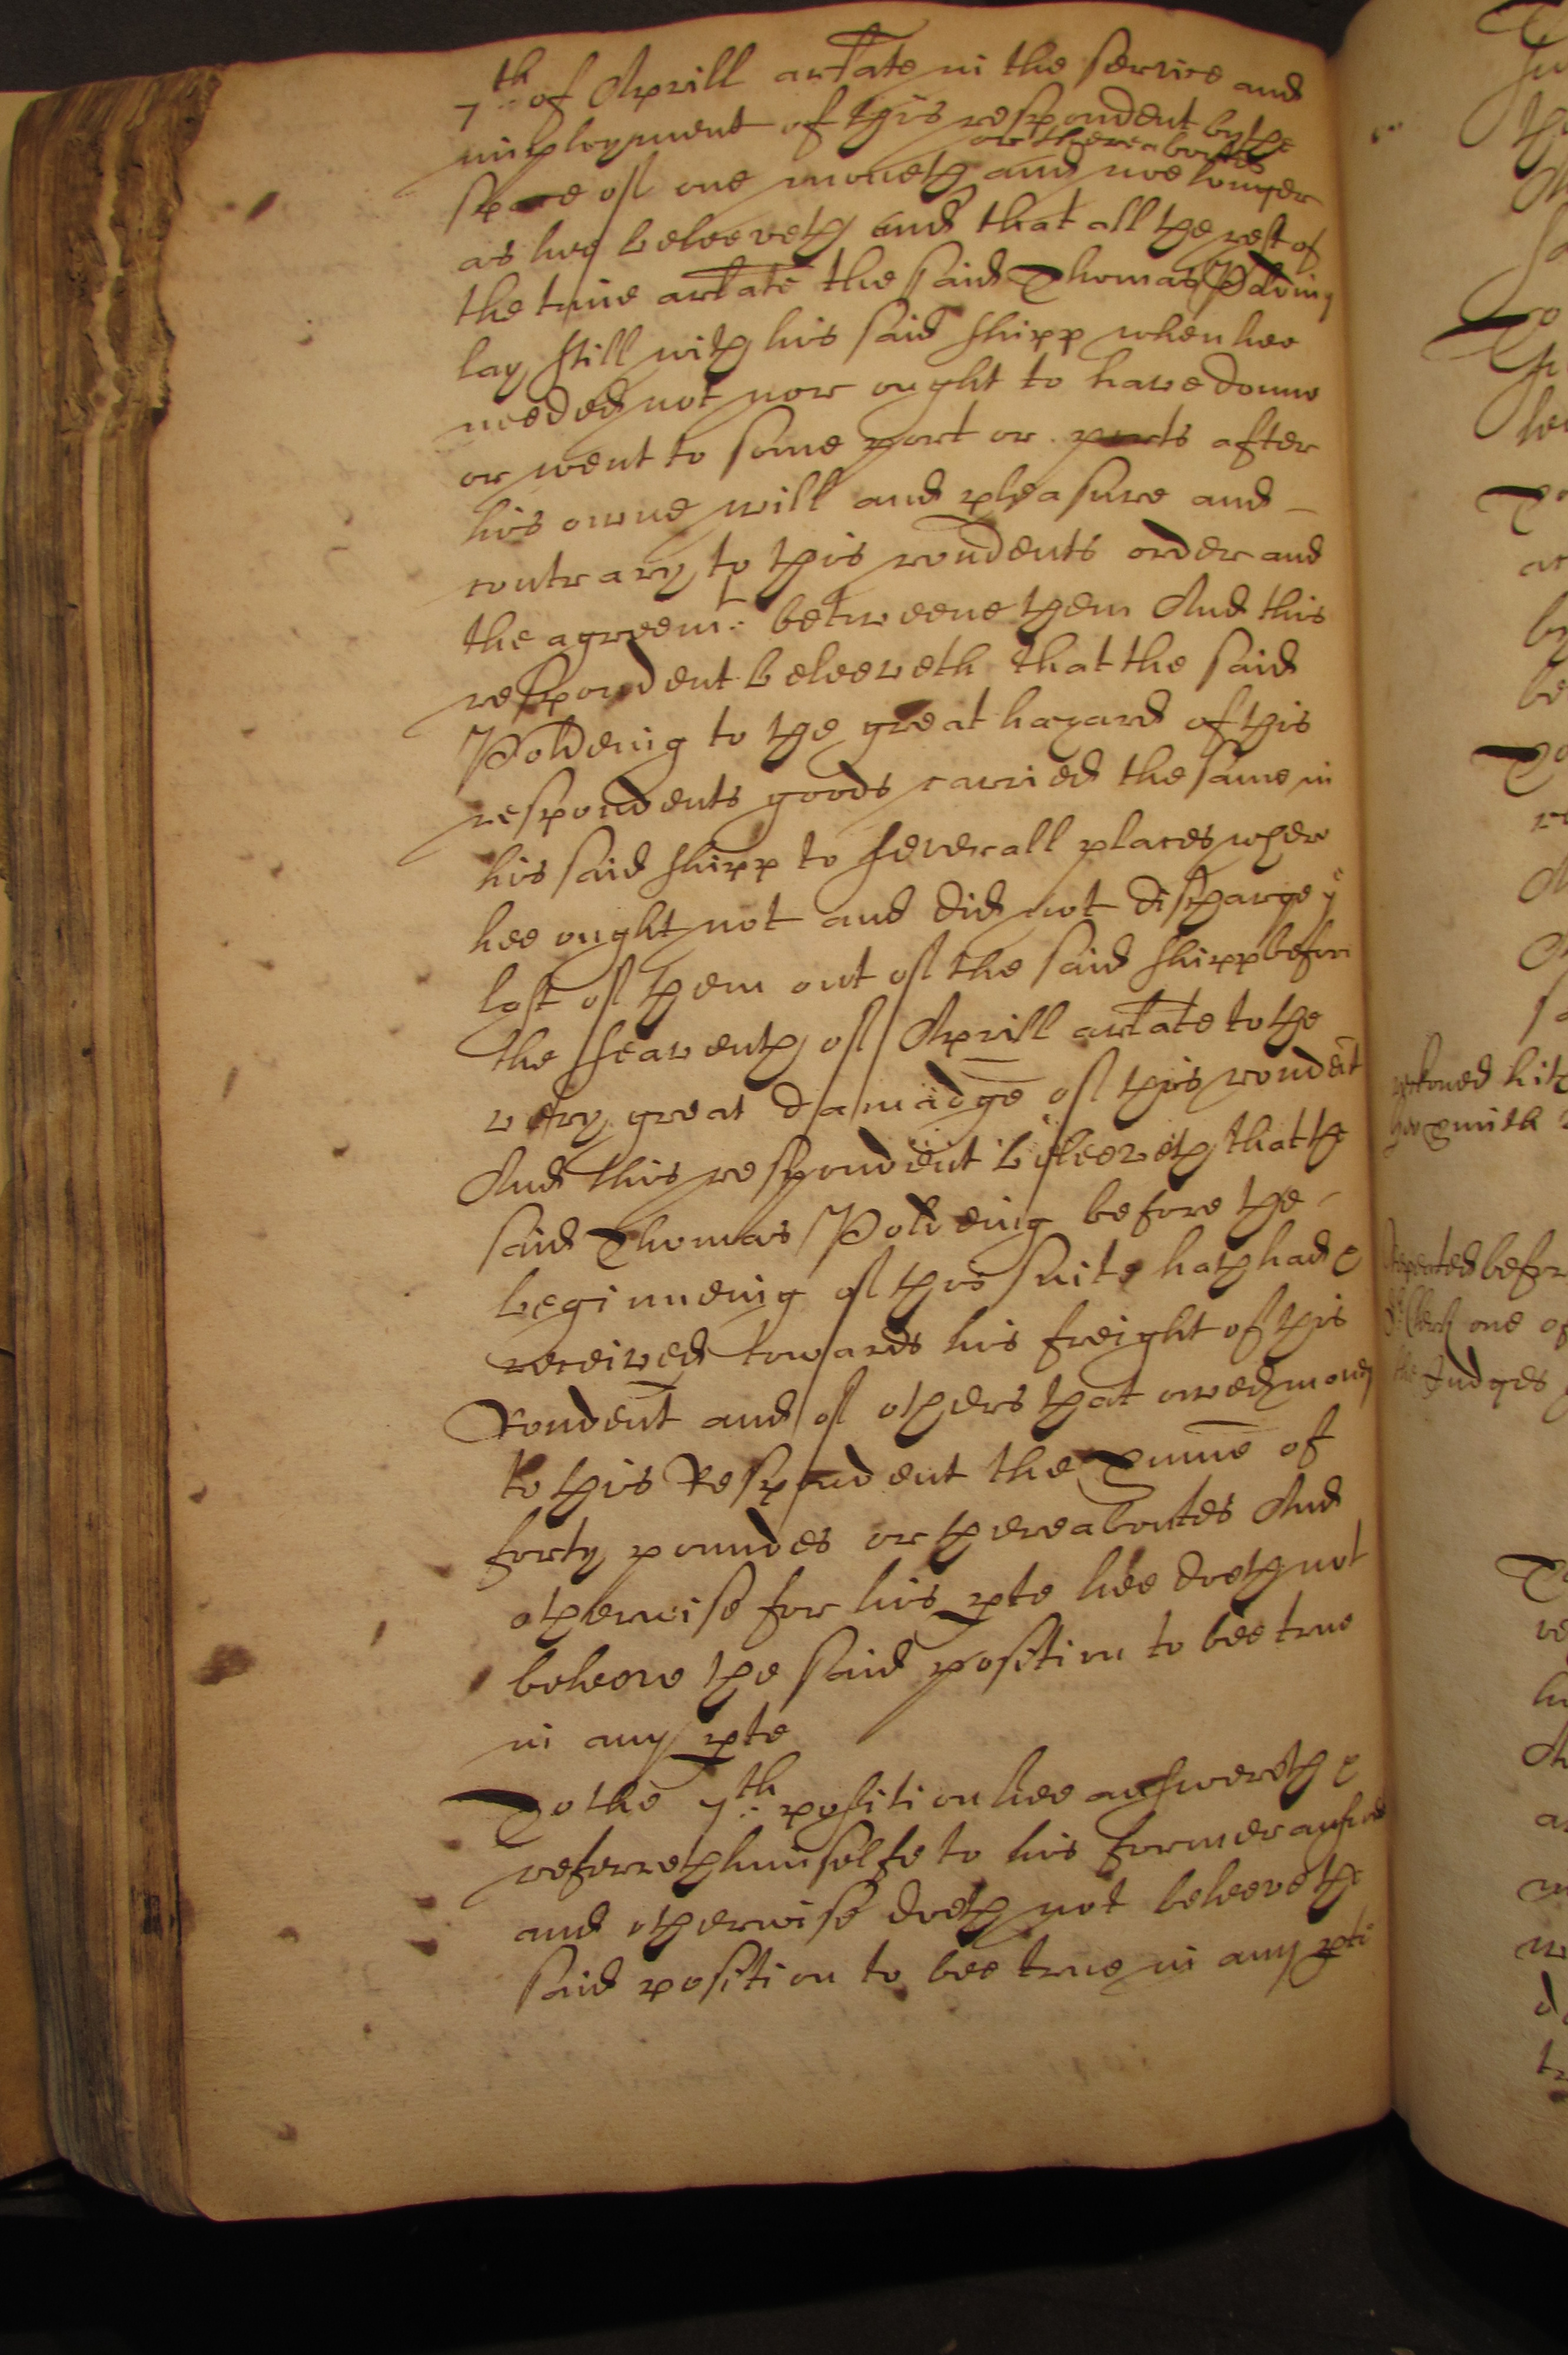 7th: of Aprill artate in the service and
imployment of this respondent by the
or thereaboutes
space of one moneth and noe longer
as hee beleeveth and that all the rest of
the time artate the said Thomas Polding
lay still with his said shipp when hee
needed not nor ought to have donne
or went to some port or ports after
his owne will and pleasure and
contrary to this rondents order and
the agreemt: betweene them And this
respondent beleeveth that the said
Poldeing to the great hazard of this
respondents goods carried the same in
his said shipp to severall places where
hee ought not and did not discharge ye
last of them out of the said shipp before
the seaventh of Aprill artate to the
very great damadge of this rondent
And this respondent beleeveth that the
said Thomas Poldeing before the
beginneing of this suite hath had &
received towards his freight of this
Rondent and of others that owed money
to this Respondent the Summe of
forty poundes or thereaboutes And
otherwise for his pte hee doeth not
beleeve the said position to bee true
in any pte
To the 7th: position hee answereth &
referreth himselfe to his former answer
and otherwise doeth not beleeve the
said position to bee true in any pte
the Judges